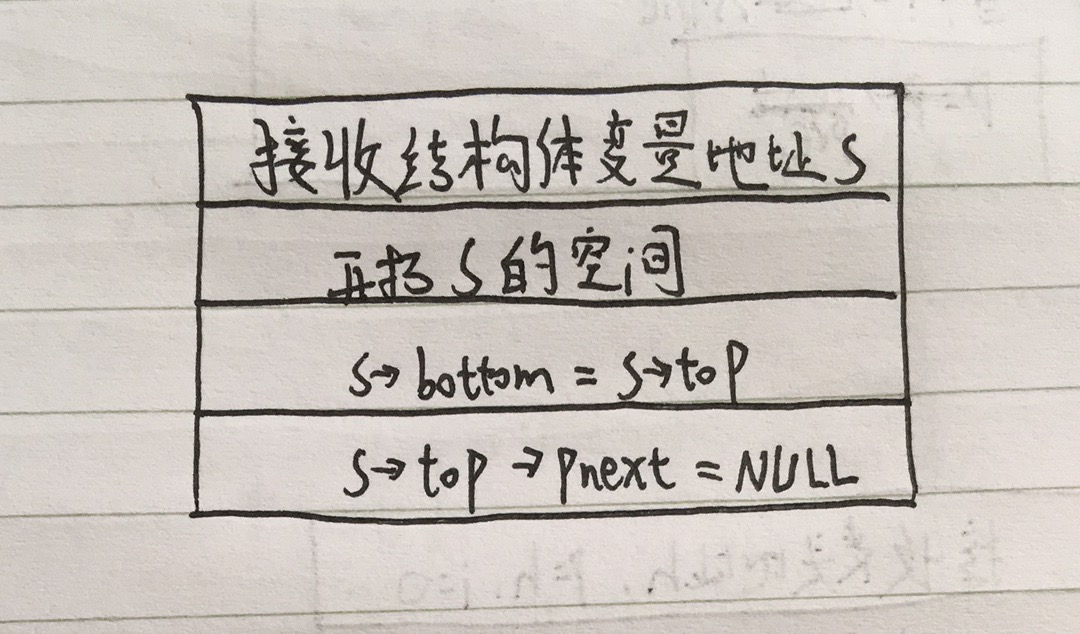 接收结构体变量地址S
开扩S的空间
S→bottom = S→top
S→top→pnext = NULL